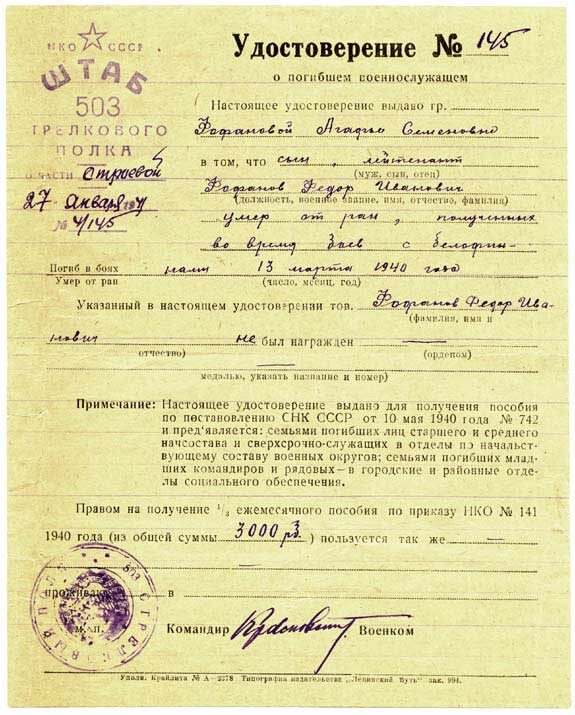 НКО СССР
ШТАБ
503
ТРЕЛКОВОГО
ПОЛКА
о части строевой
27 Января 1941
№ 4/145
Удостоверение № 145
о погибшем военнослужащем
Настоящее удостоверение выдано гр.
Фофановой Агафье Семеновне
в том, что сын, лейтенант
(муж, сын, отец)
Фофанов Федор Иванович
(должность, военное звание, имя, отчество, фамилия)
умер от ран, полученных
во время боев с белофин-
Погиб в боях нами 13 марта 1940 года
Умер от ран (число, месяц, год)
Указанный в настоящем удостоверении тов. Фофанов Федор Ива-
(фамилия, имя и
нович не был награжден —
отчество) (орденом)
—
медалью, указать название и номер)
Примечание: Настоящее удостоверение выдано для получения пособия
по постановлению СНК СССР от 10 мая 1940 года № 742
и пред'является: семьями погибших лиц старшего и среднего
начсостава и сверхсрочно-служащих в отделы по начальст-
вующему составу военных округов; семьями погибших млад-
ших командиров и рядовых – в городские и районные отде-
лы социального обеспечения.
Правом на получение 1/3 ежемесячного пособия по приказу НКО № 141
1940 года (из общей суммы 3000 рб.) пользуется так же —
проживаю в —
503 СТРЕЛКОВЫЙ ПОЛК
м. п.
Командир Военком
Уполн. Крайлита № А—2378 Типография издательства „Ленинский Путь“ зак. 994.